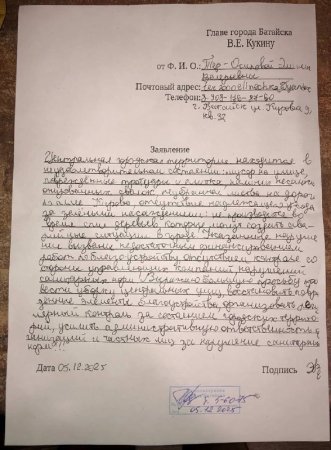 Главе города Батайска
В.Е. Кукину
от Ф. И. О.:
Валерьевны
Почтовый адрес:
Телефон:
г. Батайск ул Кирова 9,
кв. 32
Заявление
Центральная городская территория находится в
неудовлетворительном состоянии мусор на улице,
поврежденные тротуары и плитка,
свалок неубранная листва на дороге
аллее Кирова отсутствие надлежащего ухода
за зелеными насаждениями, не производится во
время спил деревьев которые могут создать ава-
рийные ситуации в городе. Указанные наруше-
ния вызваны недостаточным финансированием
работ по благоустройству отсутствием контроля со
стороны управляющих компаний, нарушений
санитарных норм! Выражаю большую просьбу про
вести уборку центральных улиц, восстановить повре
жденные элементы благоустройства, организовать регу
лярный контроль за состоянием городских террито-
рий, усилить административную ответственность
и частных лиц за нарушение санитарных
норм!!!
Дата 05.12.2025
Подпись
05.12.2025